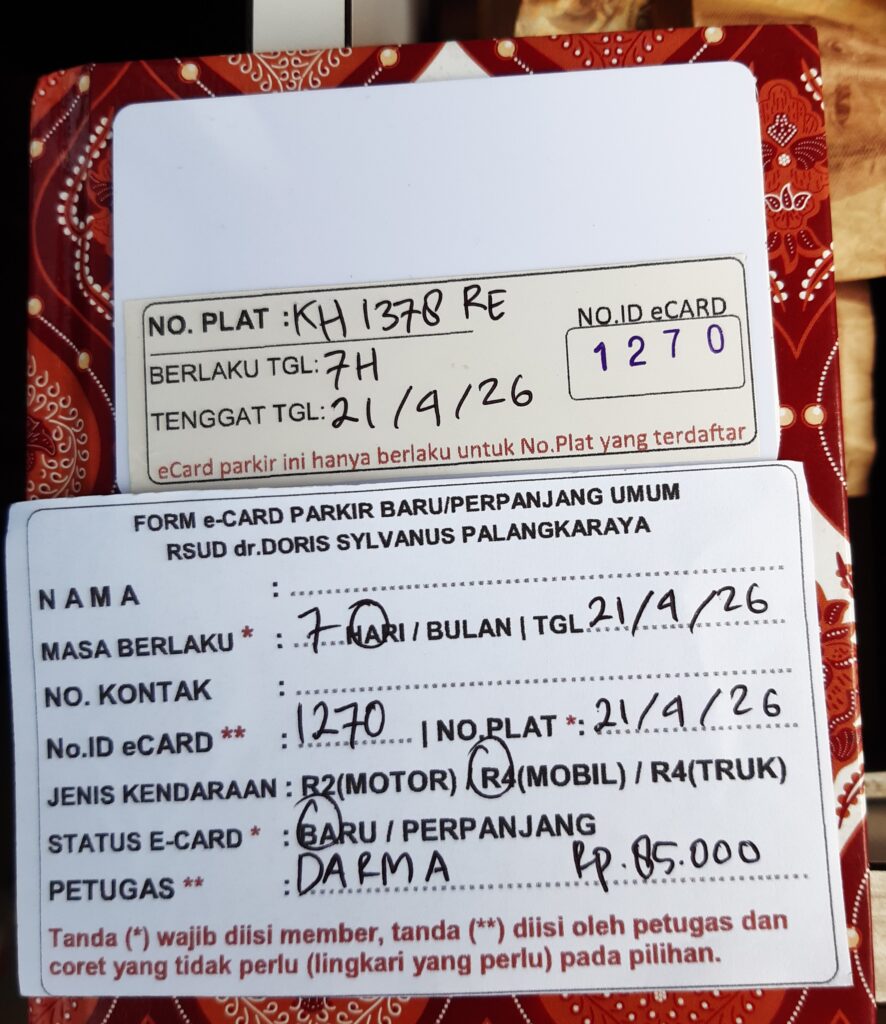 NO. PLAT : KH 1378 RE
NO.ID eCARD
1270
BERLAKU TGL: 7H
TENGGAT TGL: 21/4/26
eCard parkir ini hanya berlaku untuk No.Plat yang terdaftar
FORM e-CARD PARKIR BARU/PERPANJANG UMUM
RSUD dr.DORIS SYLVANUS PALANGKARAYA
NAMA :
MASA BERLAKU * : 7 HARI / BULAN | TGL 21/4/26
NO. KONTAK :
No.ID eCARD ** : 1270 | NO.PLAT *: 21/4/26
JENIS KENDARAAN : R2(MOTOR) / R4(MOBIL) / R4(TRUK)
STATUS E-CARD * : BARU / PERPANJANG
PETUGAS ** : DARMA Rp. 85.000
Tanda (*) wajib diisi member, tanda (**) diisi oleh petugas dan
coret yang tidak perlu (lingkari yang perlu) pada pilihan.